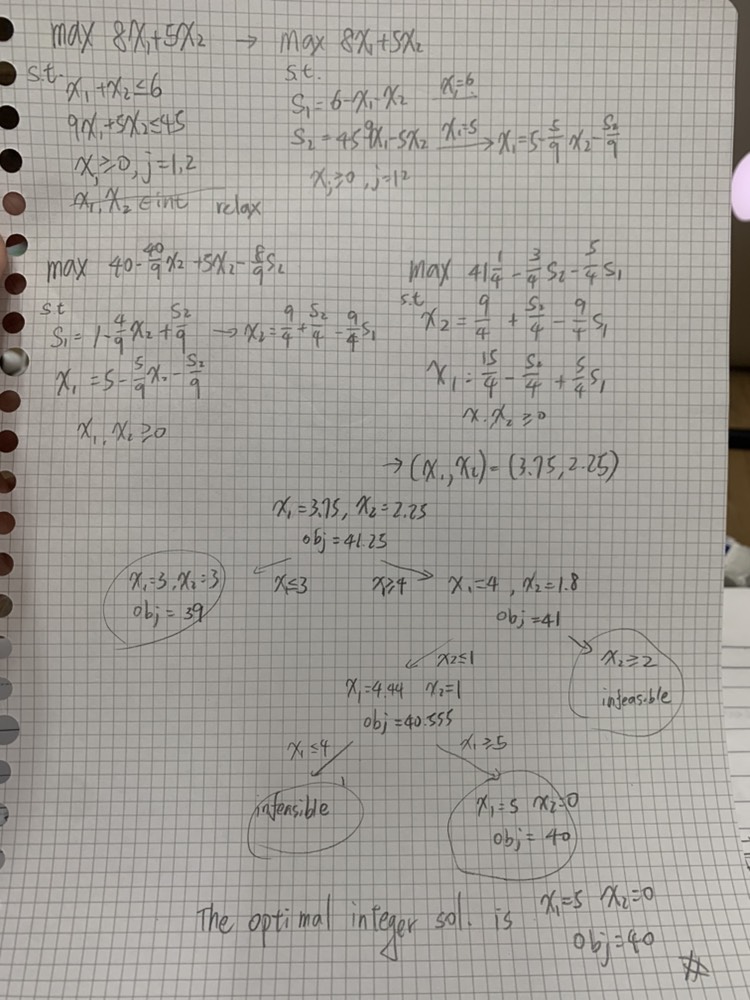 max 8x₁+5x₂ → max 8x₁+5x₂
s.t. x₁+x₂≤6
9x₁+5x₂≤45
xⱼ≥0, j=1,2
x₁, x₂ ∈ int relax
s.t.
S₁=6-x₁-x₂ x₁=6
S₂=45-9x₁-5x₂ x₁=5 → x₁=5-5/9 x₂-S₂/9
xⱼ≥0, j=1,2
max 40-40/9 x₂+5x₂-8/9 S₂
s.t
S₁=1-4/9 x₂+S₂/9 → x₂=9/4+S₂/4-9/4 S₁
x₁=5-5/9 x₂-S₂/9
x₁, x₂≥0
max 41 1/4-3/4 S₂-5/4 S₁
s.t
x₂=9/4+S₂/4-9/4 S₁
x₁=15/4-S₂/4+5/4 S₁
x₁, x₂≥0
→ (x₁, x₂)=(3.75, 2.25)
x₁=3.75, x₂=2.25
obj=41.25
x₁=3, x₂=3
obj=39
x₁≤3 x₁≥4
x₁=4, x₂=1.8
obj=41
x₂≤1
x₂≥2
infeasible
x₁=4.44 x₂=1
obj=40.555
x₁≤4 x₁≥5
infeasible
x₁=5 x₂=0
obj=40
The optimal integer sol. is x₁=5 x₂=0
obj=40
#